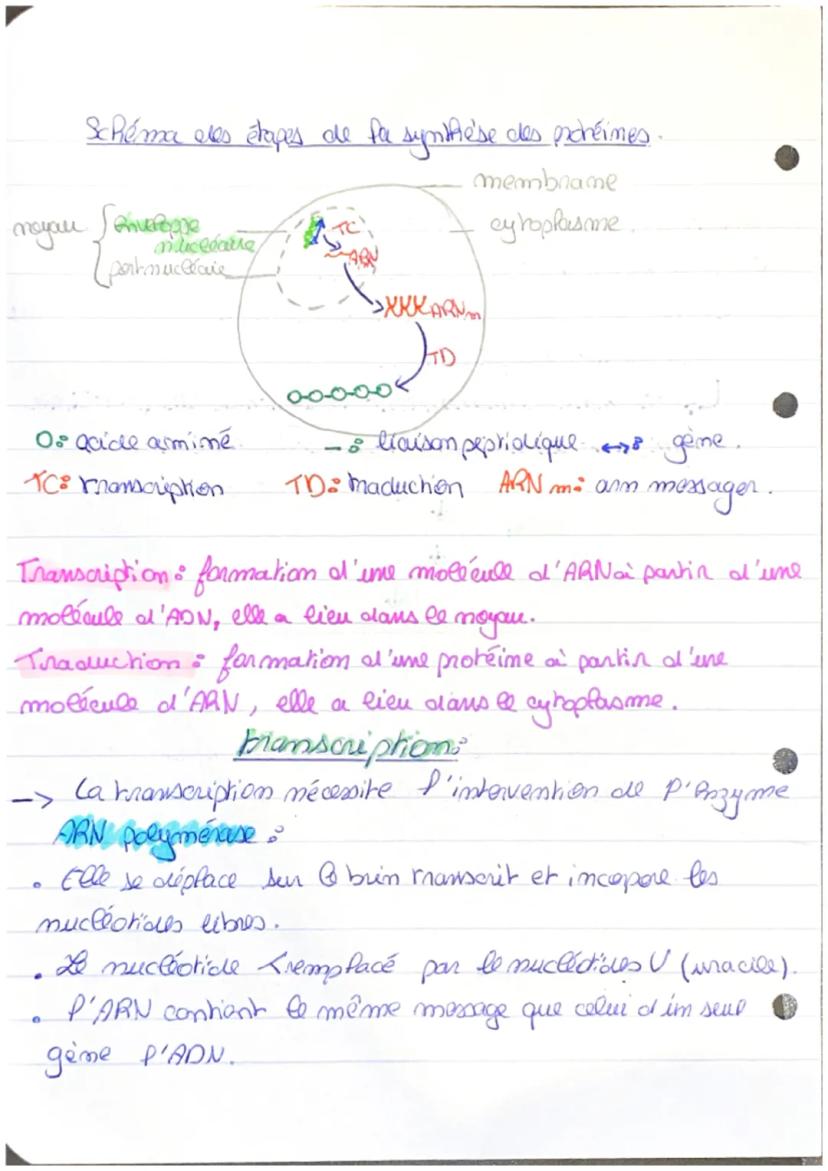 Schéma des étapes de la synthèse des protéines.
membrane
noyau
enveloppe
nucléaire
cytoplasme
TC
ARN
por nucléaire
XXX ARNm
TD
O: acide aminé
—: liaison peptidique
↔: gène.
TC: transcription
TD: traduction
ARN m: arn messager.
Transcription: formation d'une molécule d'ARN à partir d'une
molécule d'ADN, elle a lieu dans le noyau.
Traduction: formation d'une protéine à partir d'une
molécule d'ARN, elle a lieu dans le cytoplasme.
transcription:
-> la transcription nécessite l'intervention de l'Enzyme
ARN polymérase:
• Elle se déplace sur le brin transcrit et incopore les
nucléotides libres.
• Le nucléotide T remplacé par le nucléotides U (uracile).
• l'ARN contient le même message que celui d'un seul
gène l'ADN.